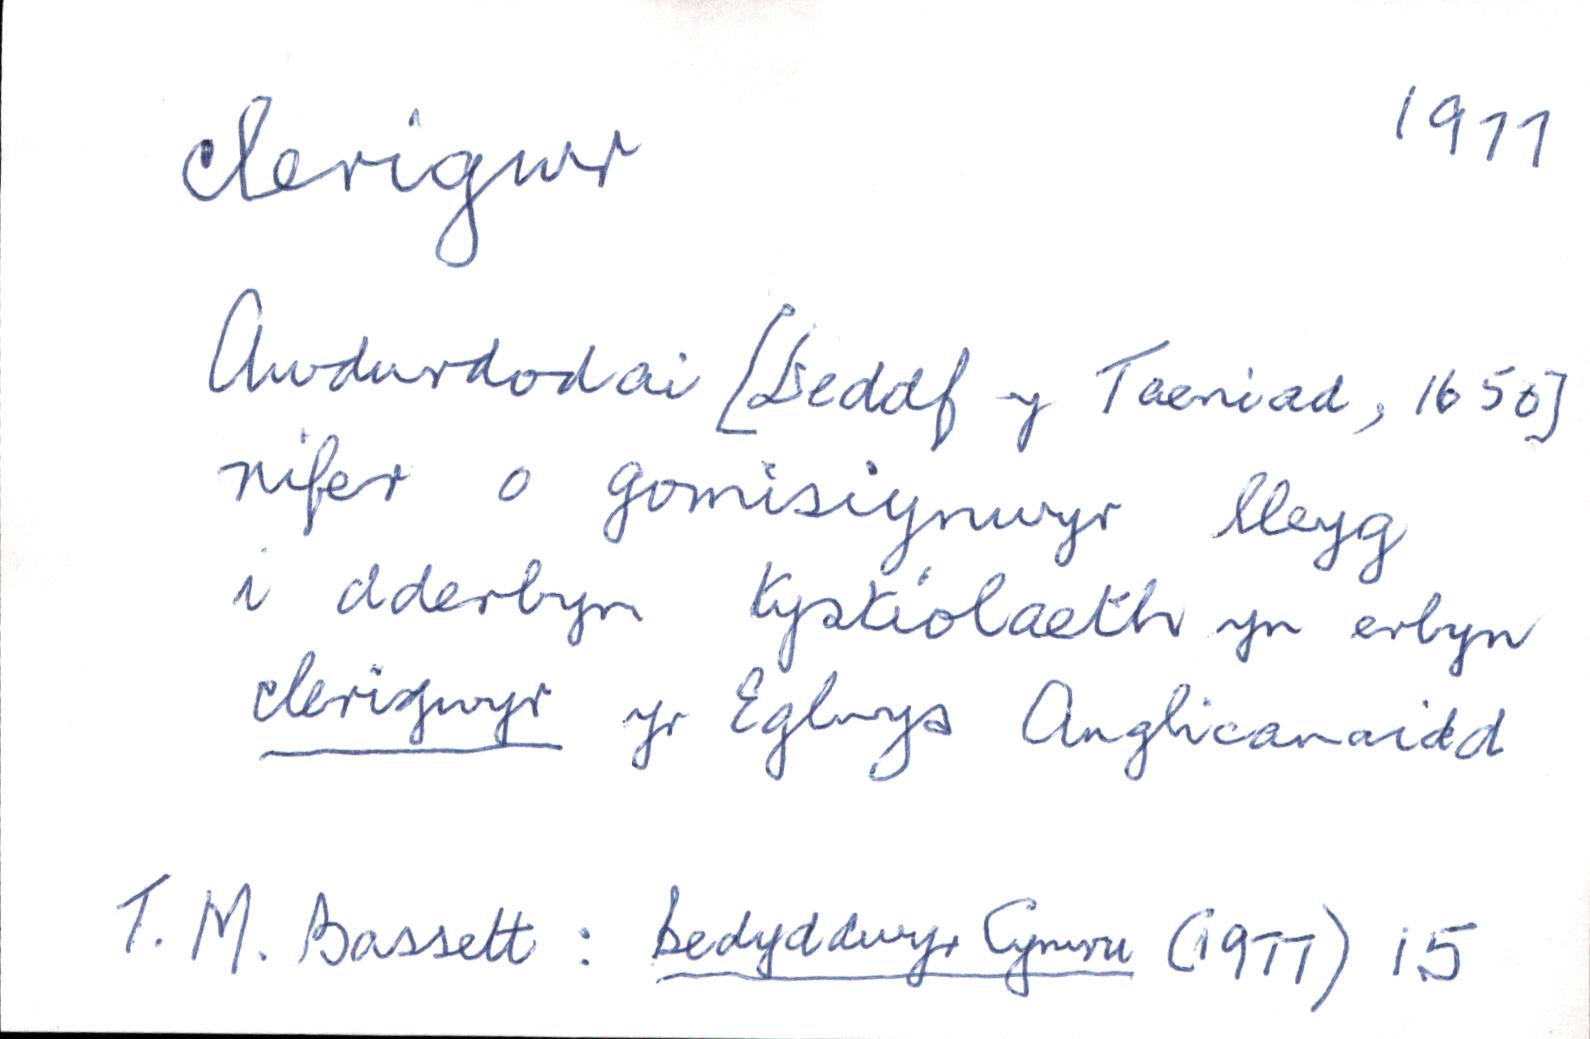 clerigwr 1977
Awdurdodai [Deddf y Taeniad, 1650]
nifer o gomisiynwyr lleyg
i dderbyn tystiolaeth yn erbyn
clerigwyr yr Eglwys Anglicanaidd
T. M. Bassett : Bedyddwyr Cymru (1977) 15